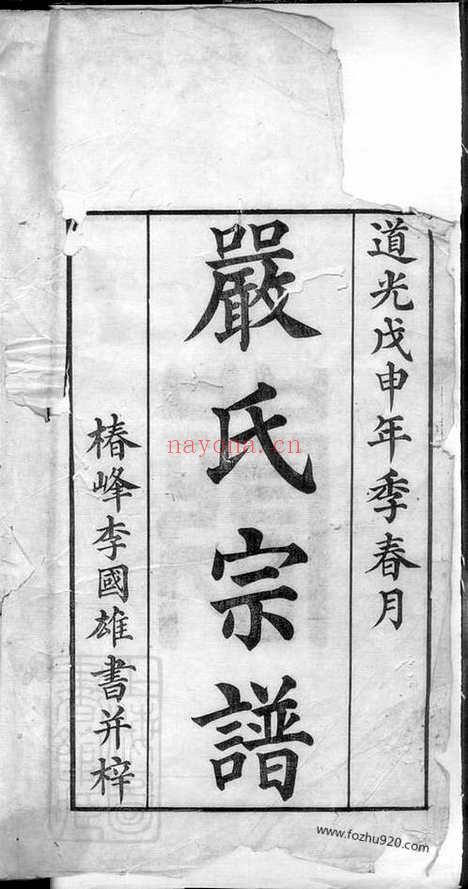 道光戊申年季春月
嚴氏宗譜
椿峰李國雄書并梓
nayona.cn
www.fozhu920.com